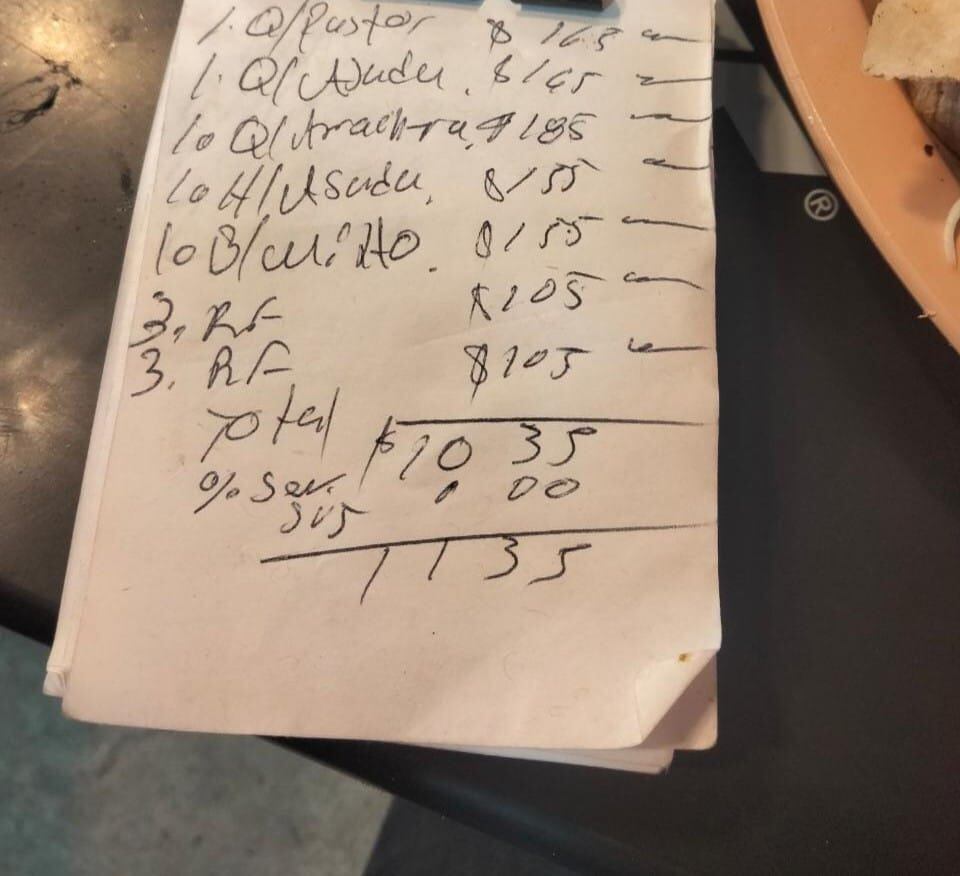 1. Q/Pastor $ 165
1. Q/Asada. $ 165
1o Q/Arrachera, $ 185
1o H/Asada. $ 155
1o B/ $ 155
3. RF $ 105
3. RF $ 105
Total $ 1035
% Ser. 100
1135
®